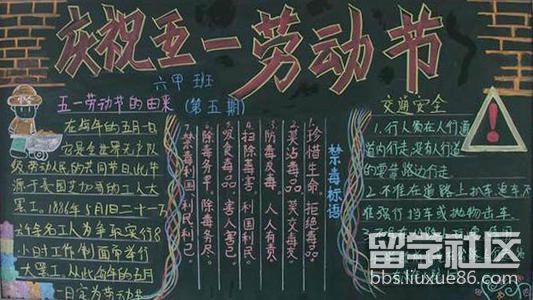 庆祝五一劳动节
六甲班
(第五期)
五一劳动节的由来
在每年的五月一日
它是全世界无产阶
级劳动人民的共同节日此节
源于美国芝加哥的工人大
罢工。1886年5月1日二十一万
六千名工人为争取实行8
小时工作制而举行
大罢工。从此每年的五月
一日定为劳动节
禁毒标语
1.珍惜生命 拒绝毒品。
2.莫沾毒品 莫交毒友
3.防毒反毒 人人有责
4.扫除毒害 利国利民。
5.吸食毒品 害人害己。
6.除毒务早 除毒务尽。
7.禁毒利国利民利己。
交通安全
1.行人须在人行
道内行走,没有人行道
的要靠路边行走。
2.不准在道路上扒车追车不
准强行拦车或抛物击车。
留学社区
bbs.liuxue86.com